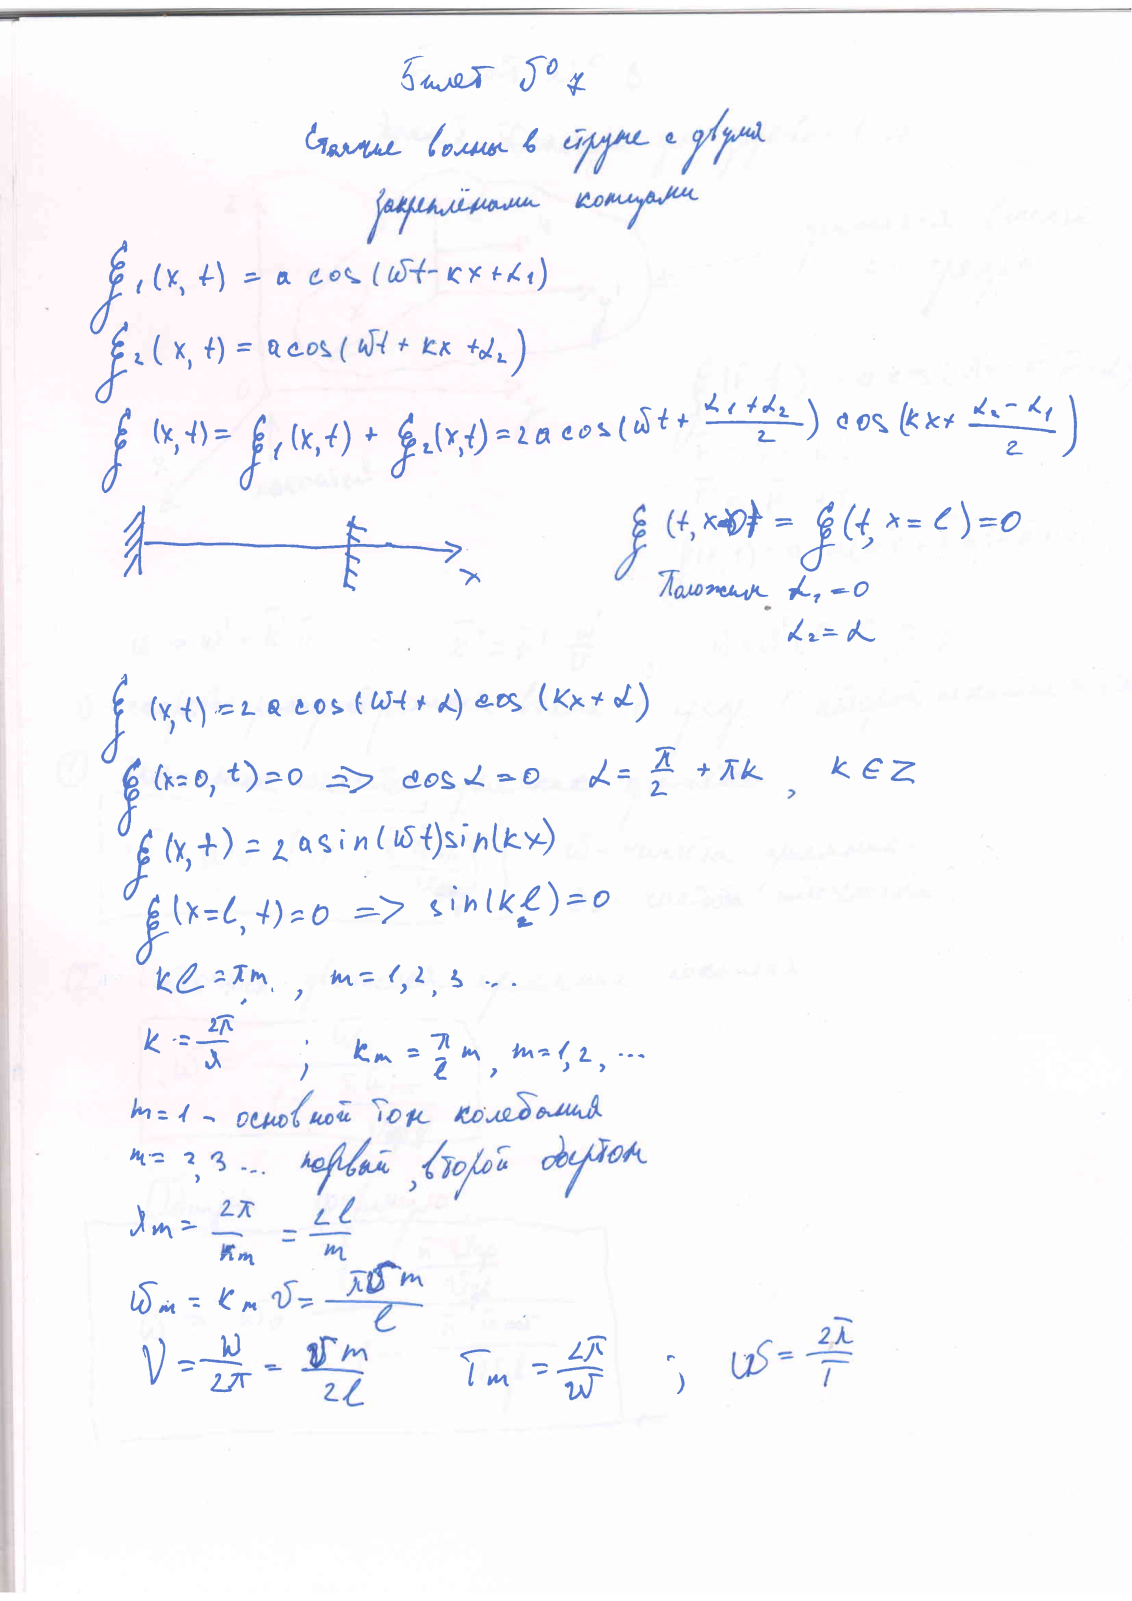 Билет № 7
Стоячие волны в струне с двумя
закреплёнами концами
ξ₁(x, t) = a cos(ωt - kx + α₁)
ξ₂(x, t) = a cos(ωt + kx + α₂)
ξ(x, t) = ξ₁(x, t) + ξ₂(x, t) = 2a cos(ωt + (α₁ + α₂)/2) cos(kx + (α₂ - α₁)/2)
x
ξ(t, x=0) = ξ(t, x = l) = 0
Положим α₁ = 0
α₂ = α
ξ(x, t) = 2 a cos(ωt + α) cos(kx + α)
ξ(x=0, t) = 0 => cos α = 0 α = π/2 + πk, k ∈ Z
ξ(x, t) = 2 a sin(ωt) sin(kx)
ξ(x=l, t) = 0 => sin(kl) = 0
kl = πm, m = 1, 2, 3 ...
k = 2π/λ ; kₘ = π/l m, m = 1, 2, ...
m = 1 - основной тон колебания
m = 2, 3 ... первый, второй обертон
λₘ = 2π/kₘ = 2l/m
ωₘ = kₘ v = πvm/l
ν = ω/2π = vm/2l Tₘ = 2π/ω ; ω = 2π/T